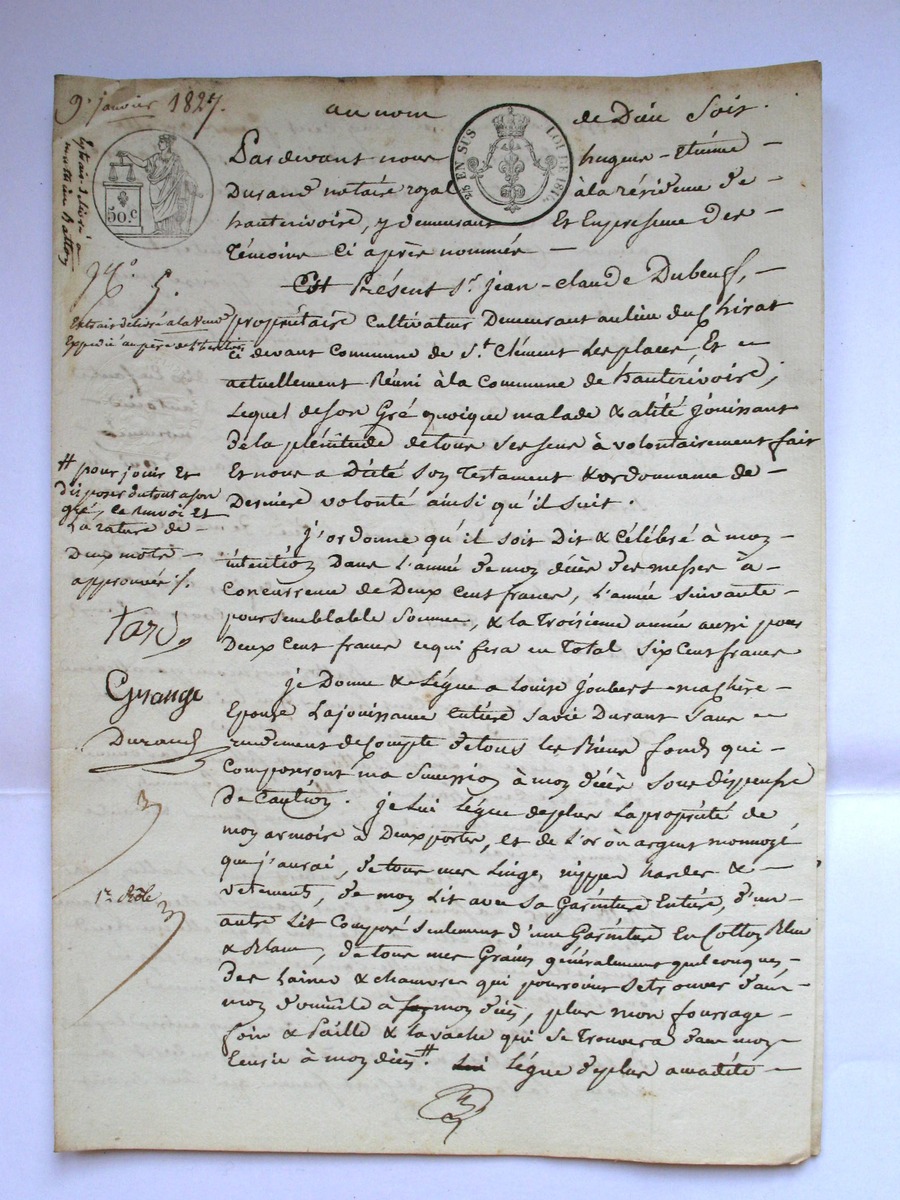 9. janvier 1827.
au nom de Dieu Soit.
Pardevant nous hugues-Etienne
Durand notaire royal à la résidence de
hauterivoire, y demeurant Et En presence des
Témoins Ci après nommés
50.c
25 EN SUS
N.° 5.
Est Présent S.r jean-claude Dubeuf,
propriétaire Cultivateur Demeurant au lieu du Chirat
Ci devant Commune de S.t Clément Les places, Et
actuellement Réuni à la Commune de hauterivoire,
Lequel de son Gré quoique malade & alité jouissant
de la plénitude de tous ses sens à volontairement fait
Et nous a Dicté Son Testament & ordonnance de
Derniere volonté ainsi qu'il suit.
j'ordonne qu'il soit Dit & Célébré à mon
intention Dans L'année de mon décès des messes à
Concurrence de Deux Cent francs, L'année Suivante
pour semblable Somme, & la Troisieme année aussi pour
Deux Cent francs ce qui fera en Total Six Cent francs
je Donne & Légue a Louise Joubert ma chère
Epouse La jouissance Entière Sa vie Durant Sans
rendement de Compte de tous les Biens fonds qui
Composeront ma Succession à mon décès Sous dispense
de Caution. je Lui légue de plus La propriété de
mon armoire à Deux portes, et de L'or ou argent monnoyé
que j'aurai, de tous mes Linges, nippes hardes &
vetements, de mon Lit avec Sa Garniture Entière, d'un
autre Lit Composé Seulement d'une Garniture En Cotton Bleu
& Blanc, de tous mes Grains généralement quelconques,
des Laines & chanvres qui pourroient se trouver dans
mon domicile à mon décès, plus mon fourrage
foin & Paille & la vache qui se trouvera dans mon
Ecurie à mon décès # Lui légue de plus a
Extrait délivré à
Extrait délivré a la Veuve
Expedié au père de L'heritier
# pour jouir Et
disposer du tout a son
gré, Le renvoi Et
La rature de
Deux mots
approuvés ./.
Tard
Grange
Durand
1.er Rôle